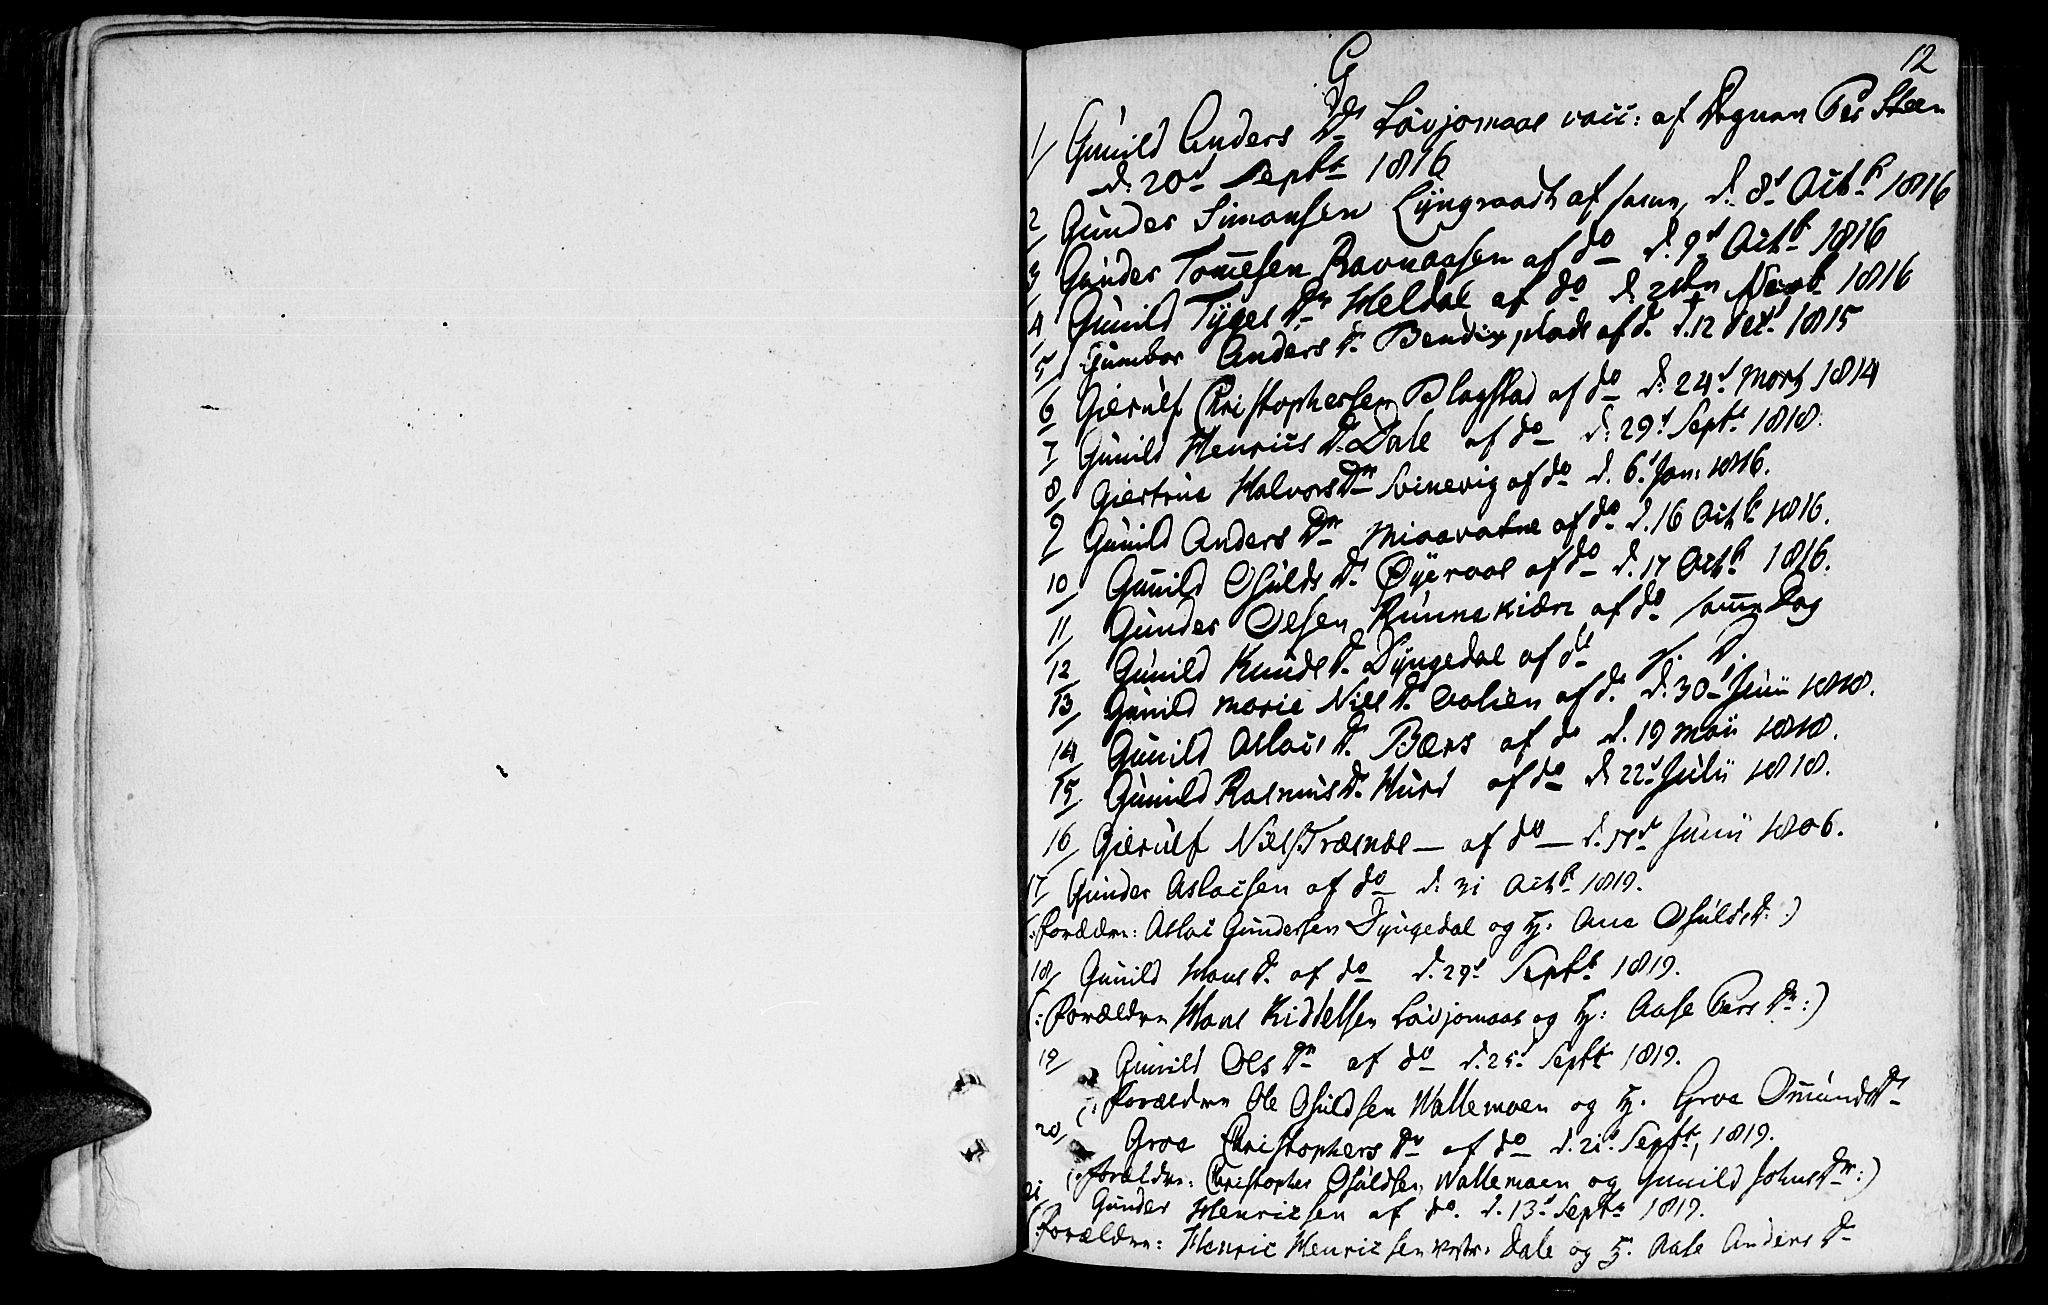 12
G
1/ Gunild Anders Dr Løvjomaas vacc: af Degnen Per Steen
d: 20d Septr 1816
2/ Gunder Simonsen Lyngroadt af samme, d. 8d Octbr 1816
3/ Gunder Tomesen Ravnaasen af do d. 9d Octbr 1816
4/ Gunild Tyges Dr Heldal af do d. Novb 1816
5/ Gumbor Anders D. Bendixplads af do d. 12 1815
6/ Gierulf Christophersen Flagstad af do d: 24d Morts 1814
7/ Gunild Henrics D. Dale af do d: 29d Septr 1818.
8/ Giertrue Halvors Dr Svinevig af do d. 6d Jan: 1816.
9/ Gunild Anders Dr Miaavatne af do d. 16 Octbr 1816.
10/ Gunild Osulds D. Øyeraas af do d. 17 Octbr 1816.
11/ Gunder Olsen Runnekiær af do samme Dag
12/ Gunild Knuds D. Dyngedal af do s. D.
13/ Gunild Marie Niels D. af do d. 30d Junii 1818.
14/ Gunild Aslacs D. Bærs af do d. 19 Maii 1818.
15/ Gunild Rasmus D. Hurd af do d. 22d Julii 1818.
16/ Gierulf Niels Træsnæs — af do — d. 17d Junii 1806.
17/ Gunder Aslacsen af do d: 31 Octbr 1819.
(: Forældre: Aslac Gundersen Dyngedal og H: Ane Osulds D. :)
18/ Gunild Hans D. af do d. 29d Septbr 1819.
(: Forældre Hans Kiddelsen Løvjomaas og H: Aase Pers Dr :)
19/ Gunild Ols Dr af do d. 25d Septbr 1819.
(: Forældre Ole Osuldsen Wallemoen og H. Groe Omunds Dr
20/ Groe Christophers Dr af do d. 21d Septbr, 1819.
(: Forældre: Christopher Osuldsen Wallemoen og Gunild Johns Dr :)
21 Gunder Henricsen af do. d. 13d Septbr 1819.
(: Forældre: Henric Henricsen Dale og H. Aase Anders Dr